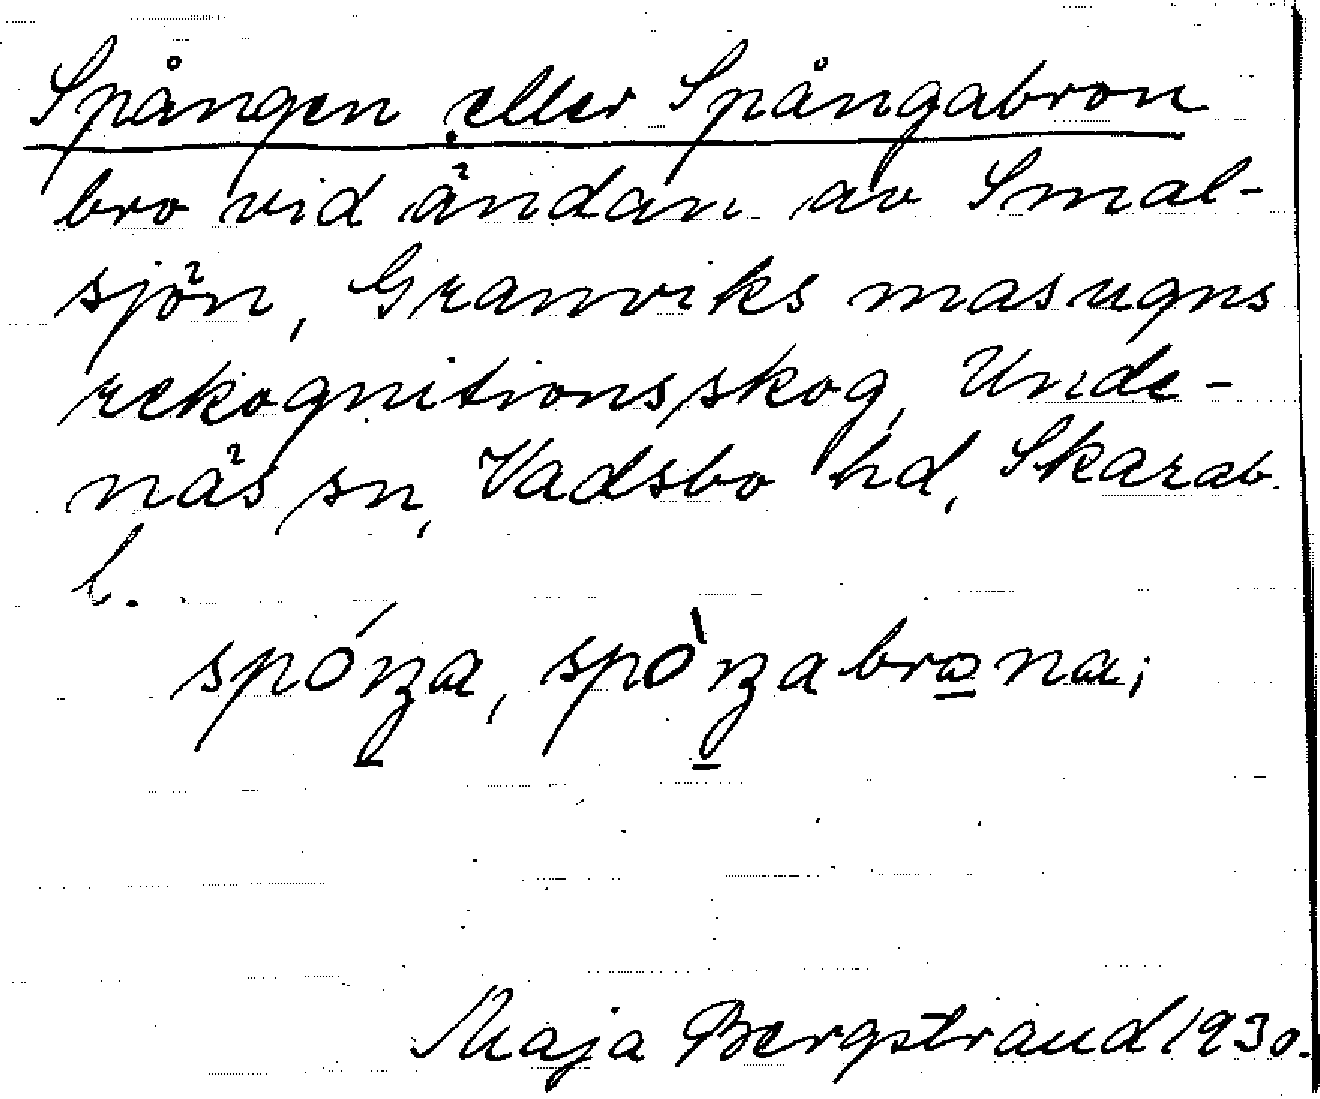 Spången eller Spångabron
bro vid ändan av Smal-
sjön, Granviks masugns
rekognitionsskog, Unde-
näs sn, Vadsbo hd, Skarab.
l.
Maja Bergstrand 1930.